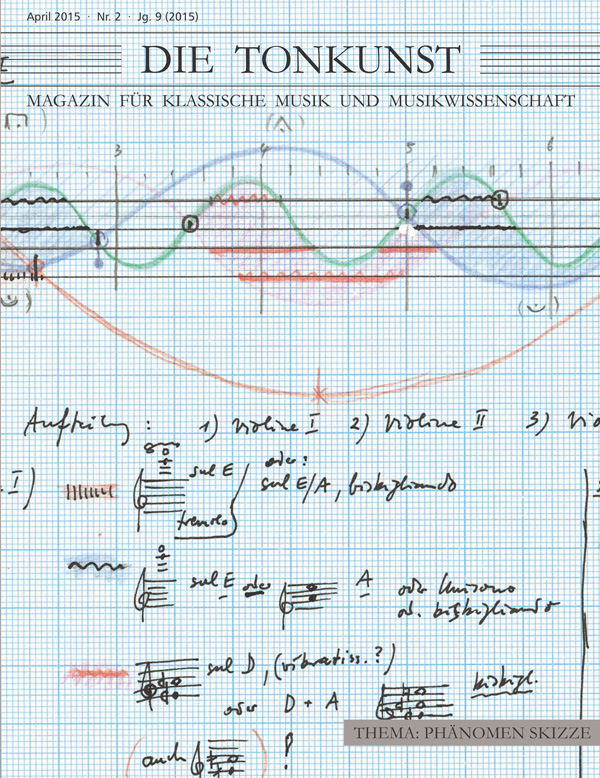 April 2015 · Nr. 2 · Jg. 9 (2015)
DIE TONKUNST
MAGAZIN FÜR KLASSISCHE MUSIK UND MUSIKWISSENSCHAFT
3 4 5 6
Aufteilung: 1) Violine I 2) Violine II 3) Vio
I)
sul E
oder:
sul E/A, bisbigliando
tremolo
sul E oder A
oder Unisono
od. bisbigliando
sul D, (vibratiss.?)
oder D + A
bisbigl.
(auch ) ?
THEMA: PHÄNOMEN SKIZZE